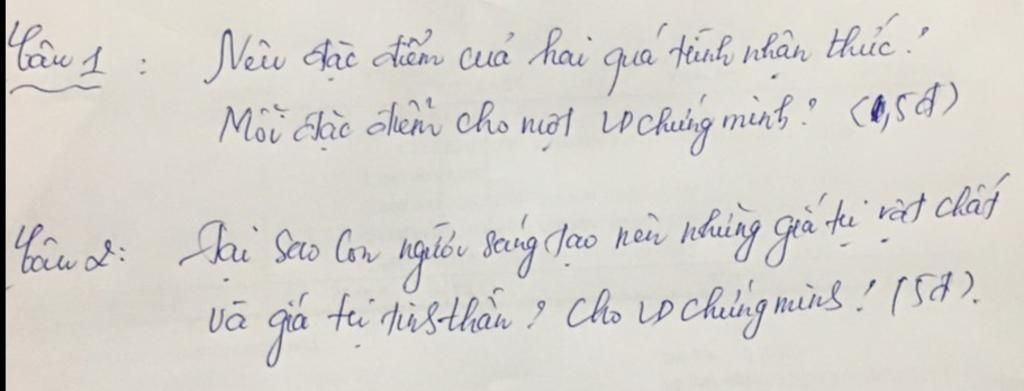 Câu 1: Nêu đặc điểm của hai quá trình nhận thức?
Mỗi đặc điểm cho một VD chứng minh? (1,5đ)
Câu 2: Tại sao Con người sáng tạo nên những giá trị vật chất
và giá trị tinh thần? Cho VD chứng minh! (5đ).